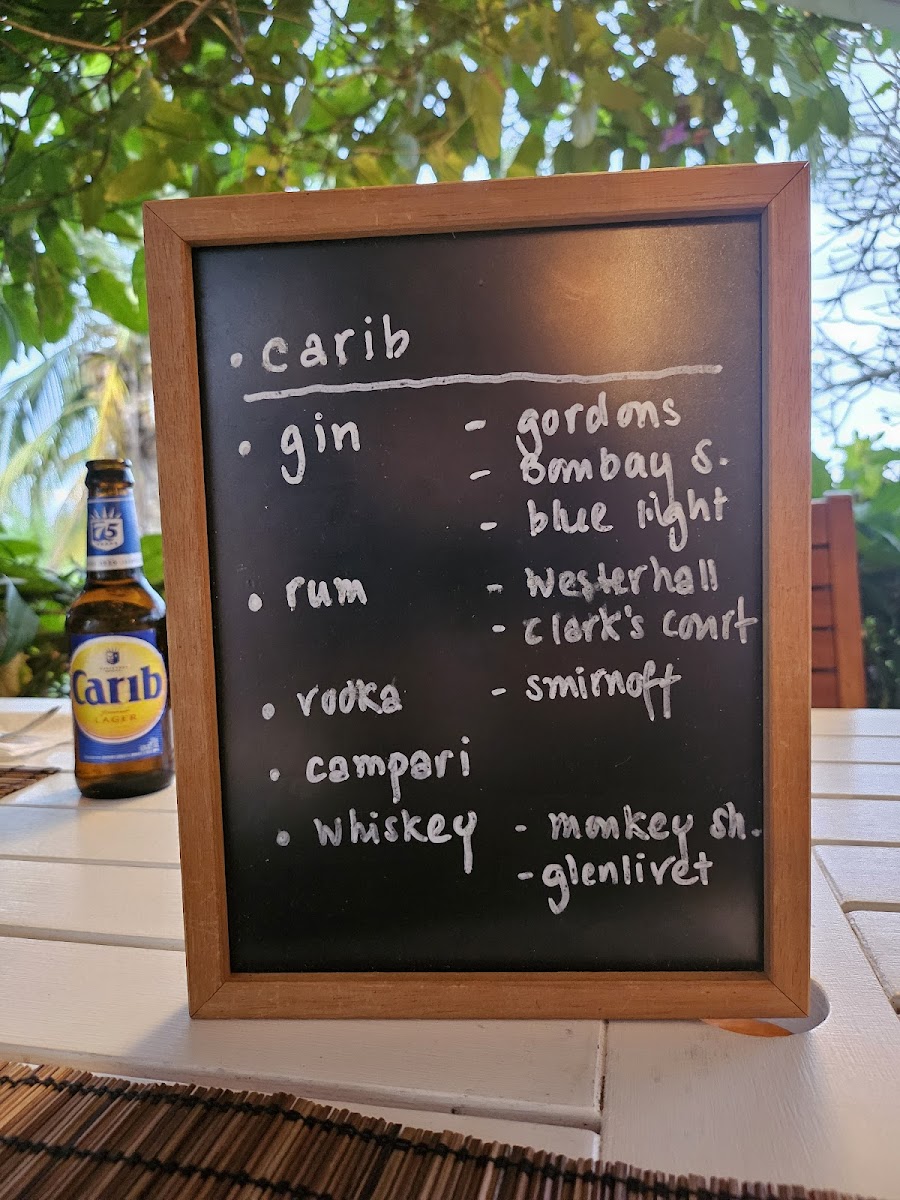 • carib
• gin - gordons
- Bombay S.
- blue light
• rum - Westerhall
- Clark's Court
• vodka - smirnoff
• campari
• Whiskey - monkey sh.
- glenlivet
75
Carib
LAGER